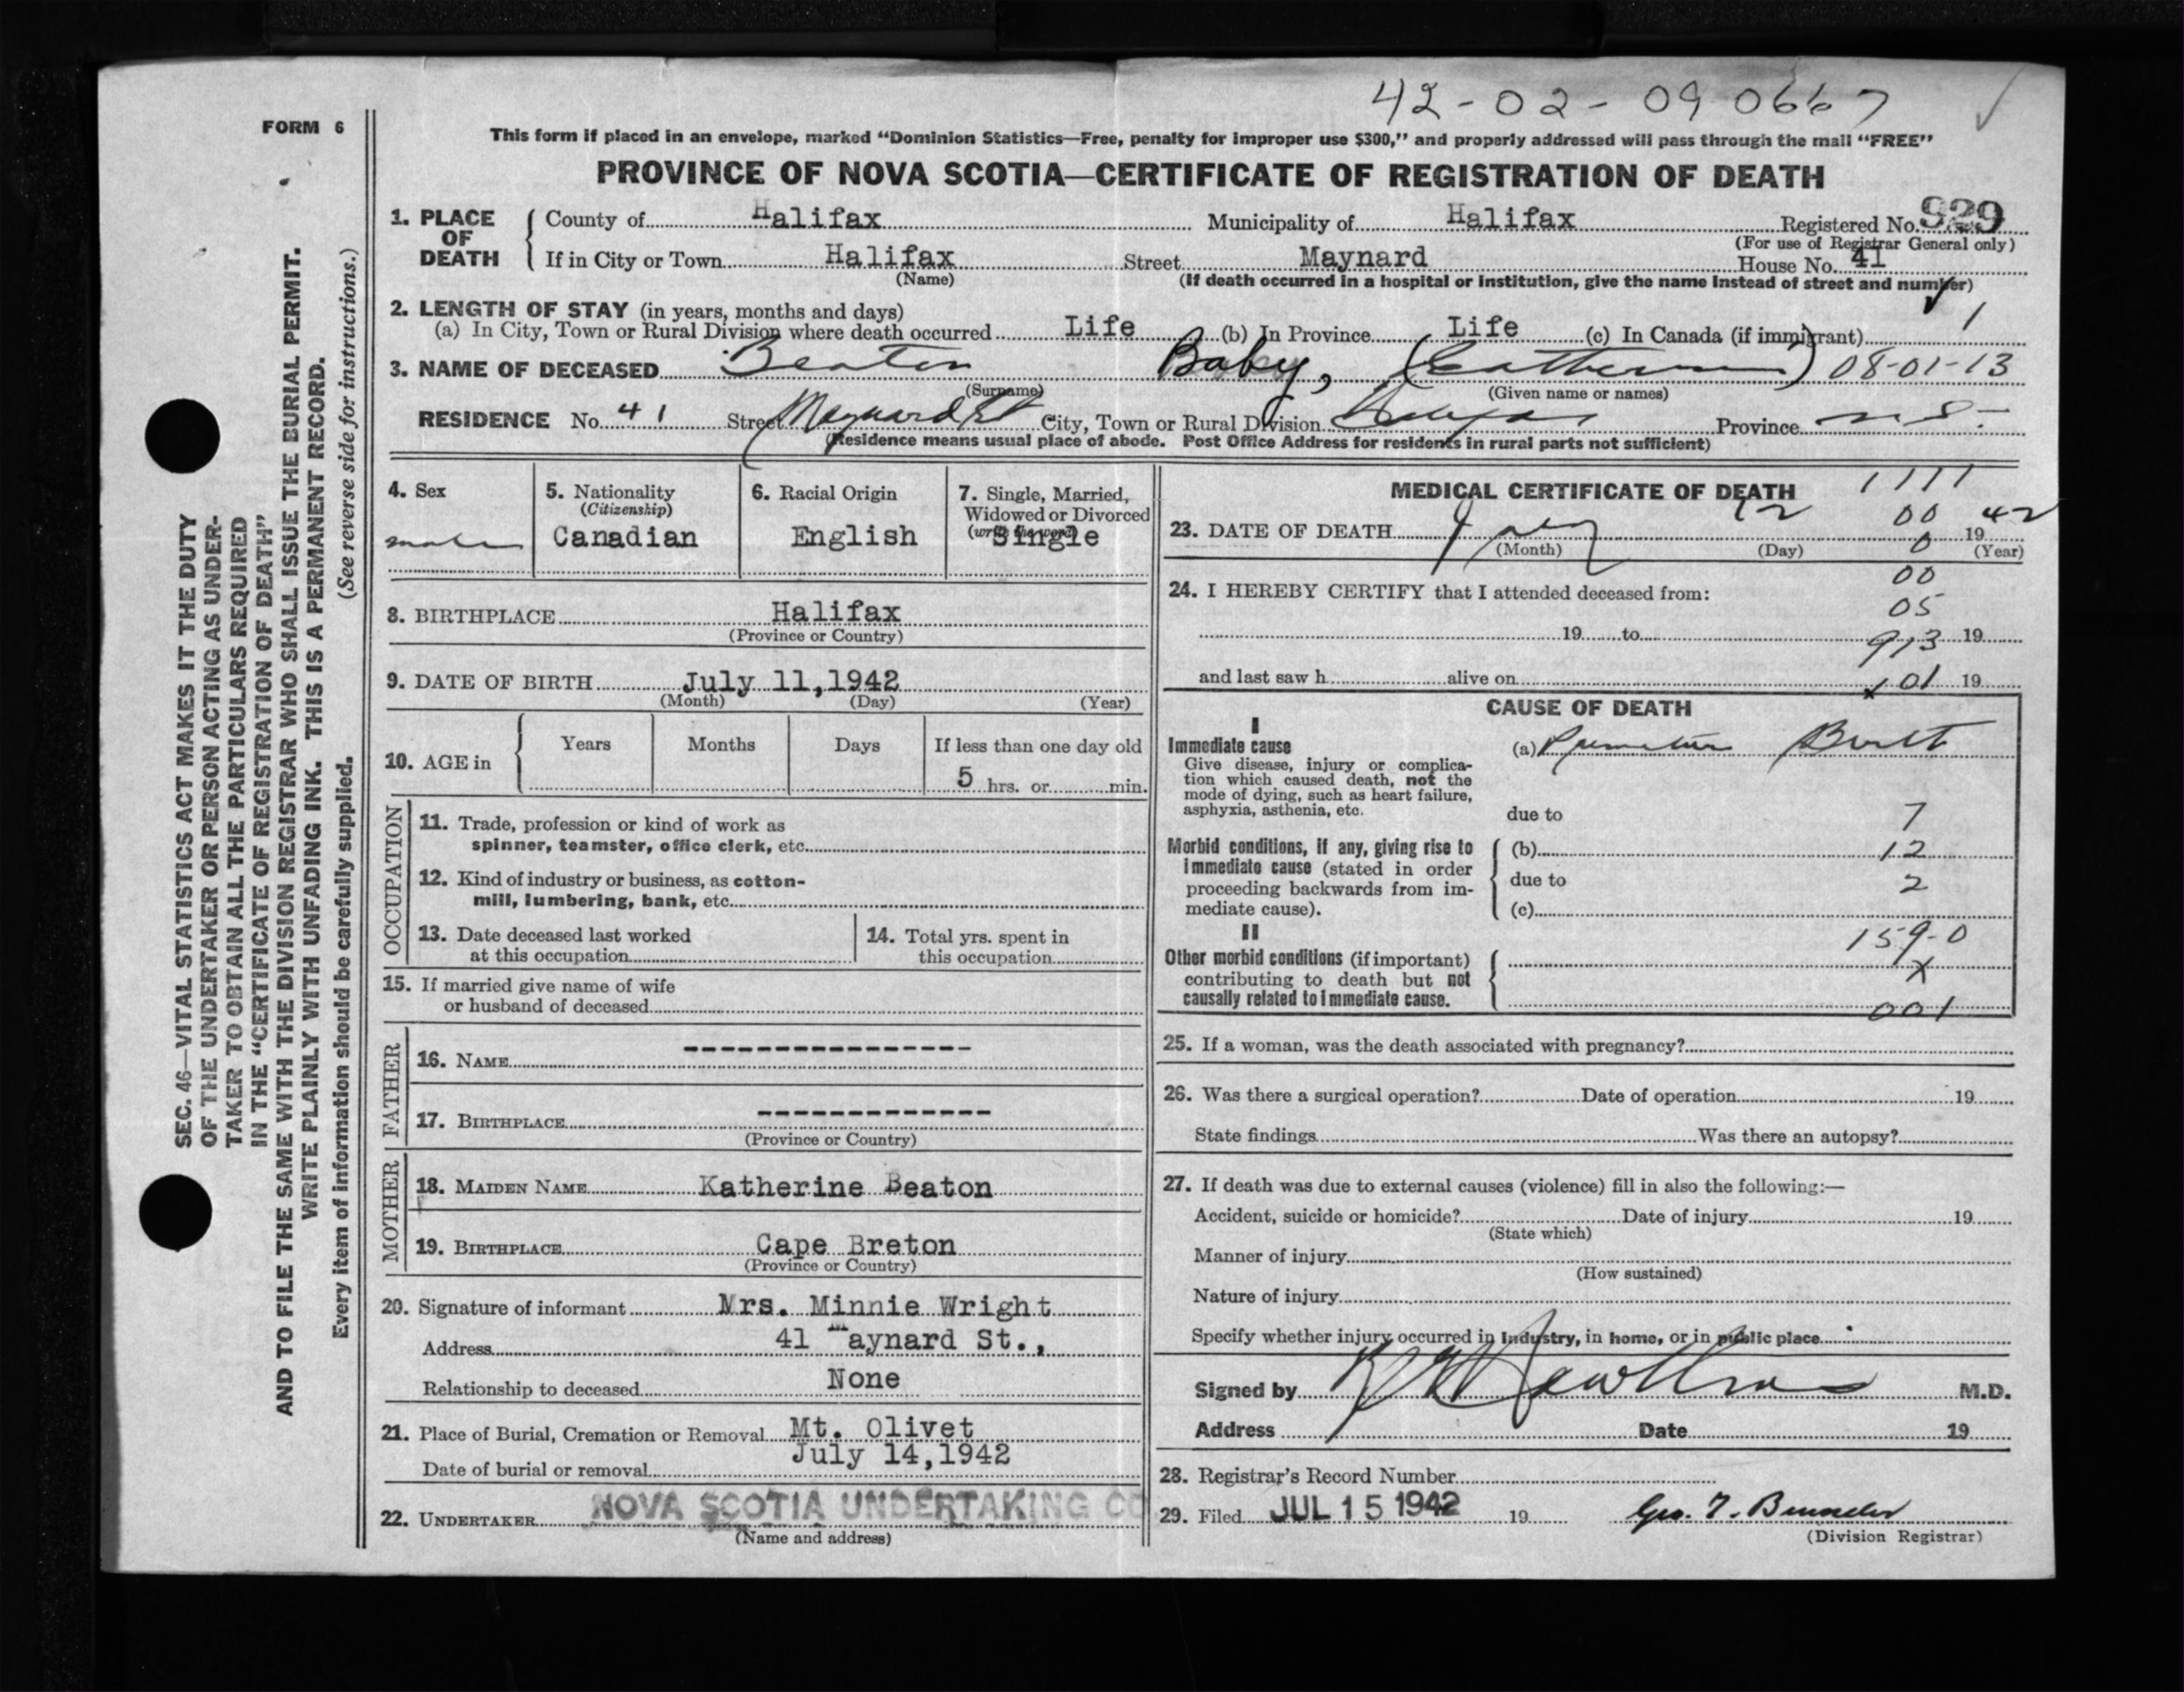 42-02-09 0667
FORM 6
This form if placed in an envelope, marked “Dominion Statistics—Free, penalty for improper use $300,” and properly addressed will pass through the mail “FREE”
PROVINCE OF NOVA SCOTIA—CERTIFICATE OF REGISTRATION OF DEATH
SEC. 46—VITAL STATISTICS ACT MAKES IT THE DUTY
OF THE UNDERTAKER OR PERSON ACTING AS UNDER-
TAKER TO OBTAIN ALL THE PARTICULARS REQUIRED
IN THE “CERTIFICATE OF REGISTRATION OF DEATH”
AND TO FILE THE SAME WITH THE DIVISION REGISTRAR WHO SHALL ISSUE THE BURIAL PERMIT.
WRITE PLAINLY WITH UNFADING INK. THIS IS A PERMANENT RECORD.
Every item of information should be carefully supplied. (See reverse side for instructions.)
1. PLACE OF DEATH
County of Halifax Municipality of Halifax Registered No. 929
(For use of Registrar General only)
If in City or Town Halifax Street Maynard House No. 41
(Name) (If death occurred in a hospital or institution, give the name instead of street and number)
2. LENGTH OF STAY (in years, months and days)
(a) In City, Town or Rural Division where death occurred Life (b) In Province Life (c) In Canada (if immigrant) 1
3. NAME OF DECEASED Beaton Baby, (Catherine) 08-01-13
(Surname) (Given name or names)
RESIDENCE No. 41 Street Maynard St City, Town or Rural Division Halifax Province N.S.
(Residence means usual place of abode. Post Office Address for residents in rural parts not sufficient)
4. Sex
male
5. Nationality
(Citizenship)
Canadian
6. Racial Origin
English
7. Single, Married,
Widowed or Divorced
(write the word)
Single
8. BIRTHPLACE Halifax
(Province or Country)
9. DATE OF BIRTH July 11, 1942
(Month) (Day) (Year)
10. AGE in Years Months Days If less than one day old
5 hrs. or min.
OCCUPATION
11. Trade, profession or kind of work as
spinner, teamster, office clerk, etc.
12. Kind of industry or business, as cotton-
mill, lumbering, bank, etc.
13. Date deceased last worked
at this occupation
14. Total yrs. spent in
this occupation
15. If married give name of wife
or husband of deceased
FATHER
16. NAME ----------------
17. BIRTHPLACE -------------
(Province or Country)
MOTHER
18. MAIDEN NAME Katherine Beaton
19. BIRTHPLACE Cape Breton
(Province or Country)
20. Signature of informant Mrs. Minnie Wright
Address 41 Maynard St.,
Relationship to deceased None
21. Place of Burial, Cremation or Removal Mt. Olivet
Date of burial or removal July 14, 1942
22. UNDERTAKER NOVA SCOTIA UNDERTAKING CO
(Name and address)
1111
MEDICAL CERTIFICATE OF DEATH
23. DATE OF DEATH July 12 00 1942
(Month) (Day) 0 (Year)
00
24. I HEREBY CERTIFY that I attended deceased from:
05
19 to 913 19
and last saw h alive on x 01 19
CAUSE OF DEATH
I
Immediate cause
Give disease, injury or complica-
tion which caused death, not the
mode of dying, such as heart failure,
asphyxia, asthenia, etc.
(a) Premature Birth
due to 7
Morbid conditions, if any, giving rise to
immediate cause (stated in order
proceeding backwards from im-
mediate cause).
(b) 12
due to 2
(c)
II
Other morbid conditions (if important)
contributing to death but not
causally related to immediate cause.
159-0
x
001
25. If a woman, was the death associated with pregnancy?
26. Was there a surgical operation? Date of operation 19
State findings Was there an autopsy?
27. If death was due to external causes (violence) fill in also the following:—
Accident, suicide or homicide? Date of injury 19
(State which)
Manner of injury
(How sustained)
Nature of injury
Specify whether injury occurred in industry, in home, or in public place
Signed by M.D.
Address Date 19
28. Registrar's Record Number
29. Filed JUL 15 1942 19 Geo. F.
(Division Registrar)